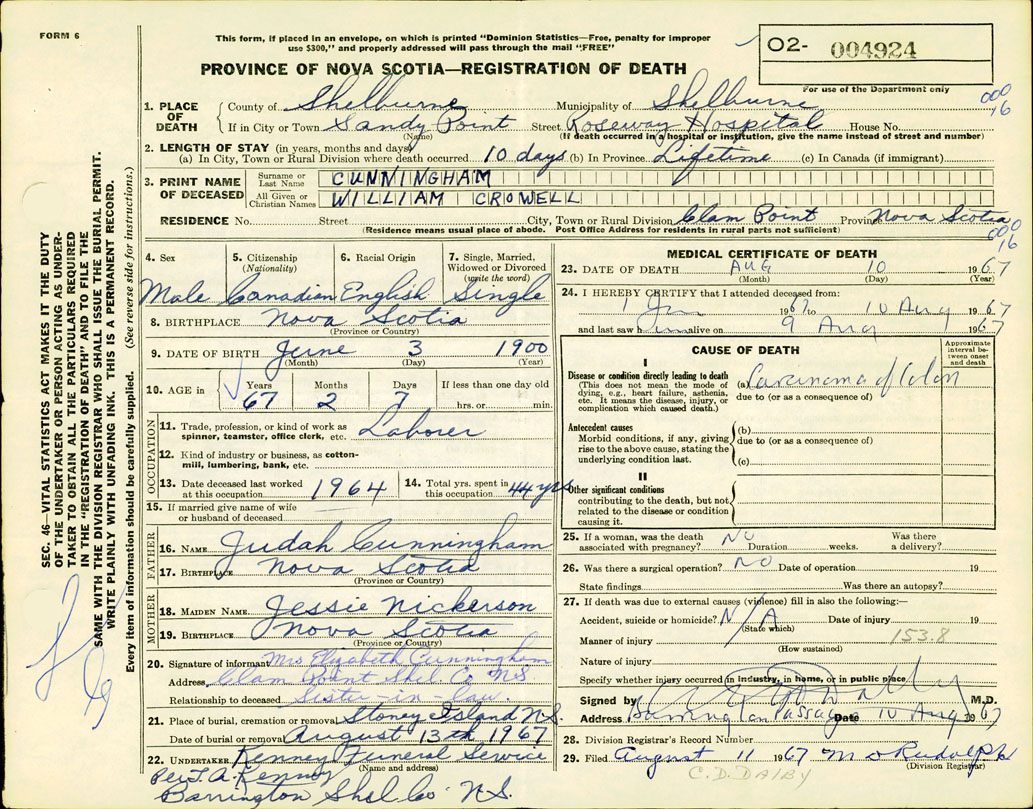 FORM 6
This form, if placed in an envelope, on which is printed "Dominion Statistics—Free, penalty for improper
use $300," and properly addressed will pass through the mail "FREE"
PROVINCE OF NOVA SCOTIA—REGISTRATION OF DEATH
02- 004924
For use of the Department only
000
16
1. PLACE OF DEATH
County of Shelburne Municipality of Shelburne
If in City or Town Sandy Point Street Roseway Hospital House No.
(Name) (If death occurred in a hospital or institution, give the name instead of street and number)
2. LENGTH OF STAY (in years, months and days)
(a) In City, Town or Rural Division where death occurred 10 days (b) In Province Lifetime (c) In Canada (if immigrant)
3. PRINT NAME OF DECEASED
Surname or Last Name CUNNINGHAM
All Given or Christian Names WILLIAM CROWELL
RESIDENCE No. Street City, Town or Rural Division Clam Point Province Nova Scotia
(Residence means usual place of abode. Post Office Address for residents in rural parts not sufficient)
000
16
SEC. 46—VITAL STATISTICS ACT MAKES IT THE DUTY
OF THE UNDERTAKER OR PERSON ACTING AS UNDER-
TAKER TO OBTAIN ALL THE PARTICULARS REQUIRED
IN THE "REGISTRATION OF DEATH" AND TO FILE THE
SAME WITH THE DIVISION REGISTRAR WHO SHALL ISSUE THE BURIAL PERMIT.
WRITE PLAINLY WITH UNFADING INK. THIS IS A PERMANENT RECORD.
Every item of information should be carefully supplied. (See reverse side for instructions.)
4. Sex 5. Citizenship (Nationality) 6. Racial Origin 7. Single, Married, Widowed or Divorced (write the word)
Male Canadian English Single
8. BIRTHPLACE Nova Scotia
(Province or Country)
9. DATE OF BIRTH June 3 1900
(Month) (Day) (Year)
10. AGE in Years Months Days If less than one day old
67 2 7 hrs. or min.
OCCUPATION
11. Trade, profession, or kind of work as spinner, teamster, office clerk, etc. Laborer
12. Kind of industry or business, as cotton-mill, lumbering, bank, etc.
13. Date deceased last worked at this occupation 1964 14. Total yrs. spent in this occupation 44 yrs
15. If married give name of wife or husband of deceased
FATHER
16. NAME Judah Cunningham
17. BIRTHPLACE Nova Scotia
(Province or Country)
MOTHER
18. MAIDEN NAME Jessie Nickerson
19. BIRTHPLACE Nova Scotia
(Province or Country)
20. Signature of informant Mrs Elizabeth Cunningham
Address Clam Point Shel Co N.S
Relationship to deceased Sister-in-law
21. Place of burial, cremation or removal Stoney Island N.S.
Date of burial or removal August 13th 1967
22. UNDERTAKER Kenney Funeral Service
(Name and address)
Per J. A. Kenney
Barrington Shel. Co. N.S.
MEDICAL CERTIFICATE OF DEATH
23. DATE OF DEATH AUG 10 1967
(Month) (Day) (Year)
24. I HEREBY CERTIFY that I attended deceased from:
1 Jan 1967 to 10 Aug 1967
and last saw him alive on 9 Aug 1967
CAUSE OF DEATH
Approximate interval between onset and death
I
Disease or condition directly leading to death (a) Carcinoma of Colon
(This does not mean the mode of dying, e.g., heart failure, asthenia, etc. It means the disease, injury, or complication which caused death.)
due to (or as a consequence of)
Antecedent causes (b)
Morbid conditions, if any, giving rise to the above cause, stating the underlying condition last.
due to (or as a consequence of)
(c)
II
Other significant conditions
contributing to the death, but not related to the disease or condition causing it.
25. If a woman, was the death associated with pregnancy? NO Duration weeks. Was there a delivery?
26. Was there a surgical operation? NO Date of operation 19
State findings Was there an autopsy?
27. If death was due to external causes (violence) fill in also the following:—
Accident, suicide or homicide? N/A Date of injury 19
(State which)
Manner of injury 153.8
(How sustained)
Nature of injury
Specify whether injury occurred in industry, in home, or in public place
Signed by M.D.
Address Barrington Passage Date 10 Aug 1967
28. Division Registrar's Record Number
29. Filed August 11 1967 M O Rudolph
(Division Registrar)
C. D. DALBY